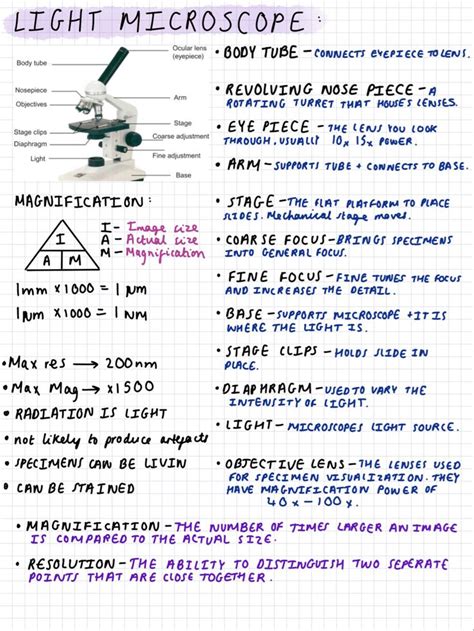 LIGHT MICROSCOPE:
Ocular lens
(eyepiece)
Body tube
Nosepiece
Objectives
Arm
Stage
Stage clips
Coarse adjustment
Diaphragm
Fine adjustment
Light
Base
• BODY TUBE – CONNECTS EYEPIECE TO LENS.
• REVOLVING NOSE PIECE – A
ROTATING TURRET THAT HOUSES LENSES.
• EYE PIECE – THE LENS YOU LOOK
THROUGH, USUALLY 10x 15x POWER.
• ARM – SUPPORTS TUBE + CONNECTS TO BASE.
MAGNIFICATION:
I
A M
I – Image size
A – Actual size
M – Magnification
1mm x1000 = 1 µm
1µm x1000 = 1 NM
• Max res → 200nm
• Max Mag → x1500
• RADIATION IS LIGHT
• not likely to produce artefacts
• SPECIMENS CAN BE LIVIN
• CAN BE STAINED
• STAGE – THE FLAT PLATFORM TO PLACE
SLIDES. Mechanical stage moves.
• COARSE FOCUS – BRINGS SPECIMENS
INTO GENERAL FOCUS.
• FINE FOCUS – FINE TUNES THE FOCUS
AND INCREASES THE DETAIL.
• BASE – SUPPORTS MICROSCOPE + IT IS
WHERE THE LIGHT IS.
• STAGE CLIPS – HOLDS SLIDE IN
PLACE.
• DIAPHRAGM – USED TO VARY THE
INTENSITY OF LIGHT.
• LIGHT – MICROSCOPES LIGHT SOURCE.
• OBJECTIVE LENS – THE LENSES USED
FOR SPECIMEN VISUALIZATION. THEY
HAVE MAGNIFICATION POWER OF
40x – 100x.
• MAGNIFICATION – THE NUMBER OF TIMES LARGER AN IMAGE
IS COMPARED TO THE ACTUAL SIZE.
• RESOLUTION – THE ABILITY TO DISTINGUISH TWO SEPERATE
POINTS THAT ARE CLOSE TOGETHER.